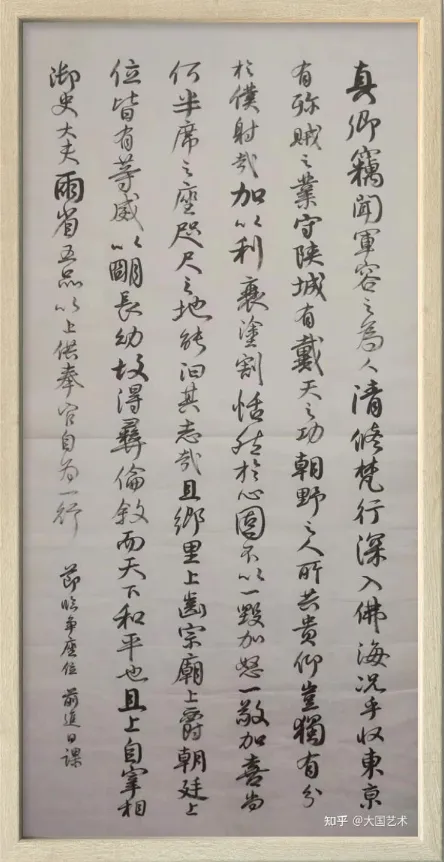 真卿竊聞軍容之為人清修梵行深入佛海况乎收東京
有殄賊之業守陕城有戴天之功朝野之人所共貴仰豈獨有分
於僕射哉加以利衰塗割恬然於心固不以一毀加怒一敬加喜尚
何半席之座咫尺之地能汩其志哉且鄉里上齒宗廟上爵朝廷上
位皆有等威以明長幼故得彝倫敘而天下和平也且上自宰相
御史大夫兩省五品以上供奉官自為一行
節臨争座位 前進日課
知乎 @大国艺术